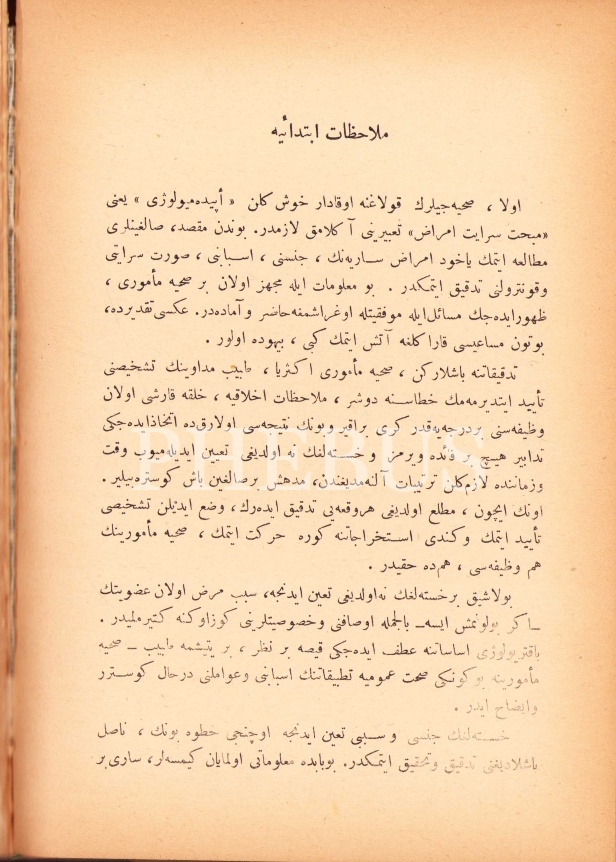 ملاحظات ابتدائيه
اولا ، صحيه‌جيلرك قولاغنه اوقادار خوش كلن « أپيده‌ميولوژى » يعنى
«مبحث سرايت امراض» تعبيرينى آكلامق لازمدر. بوندن مقصد، صالغينلرى
مطالعه ايتمك ياخود امراض ساريه‌نك ، جنسنى ، اسبابنى ، صورت سرايتى
وقونترولنى تدقيق ايتمكدر . بو معلومات ايله مجهز اولان بر صحيه مأمورى ،
ظهورايده‌جك مسائل‌ايله موفقيتله اوغراشمغه‌حاضر و آماده‌در. عكسى‌تقديرده،
بوتون مساعيسى قاراكلغه آتش ايتمك كبى ، بيهوده اولور .
تدقيقاتنه باشلاركن ، صحيه مأمورى اكثريا ، طبيب مداوينك تشخيصنى
تأييد ايتديرمه‌مك خطاسنه دوشر ، ملاحظات اخلاقيه ، خلقه قارشى اولان
وظيفه‌سنى بردرجه‌يه‌قدر كرى براقيروبونك نتيجه‌سى اولارق‌ده اتخاذايده‌جكى
تدابير هيچ بر فائده ويرمز و خسته‌لغك نه اولديغى تعيين ايديله‌ميوب وقت
وزماننده لازم‌كلن ترتيبات آلنه‌مديغندن، مدهش برصالغين باش كوستره‌بيلير .
اونك ايچون ، مطلع اولديغى هروقعه‌يى تدقيق ايده‌رك، وضع ايديلن تشخيصى
تأييد ايتمك وكندى استخراجاتنه كوره حركت ايتمك ، صحيه مأمورينك
هم وظيفه‌سى ، هم‌ده حقيدر .
بولاشيق برخسته‌لغك نه‌اولديغى تعين ايدنجه، سبب مرض اولان عضويتك
ـ اكر بولونمش ايسه ـ بالجمله اوصافنى وخصوصيتلرينى كوزاوكنه كتيرمليدر .
باقتريولوژى اساساتنه عطف ايده‌جكى قيصه بر نظر ، بر يتيشمه طبيب ـ صحيه
مأمورينه بوكونكى صحت عموميه تطبيقاتنك اسبابنى وعواملنى درحال كوسترر
وايضاح ايدر .
خسته‌لغك جنسى و سببى تعين ايدنجه اوچنجى خطوه بونك ، ناصل
باشلاديغنى تدقيق وتحقيق ايتمكدر. بوبابده معلوماتى اولمايان كيمسه‌لر، سارى‌بر
PHEBUS